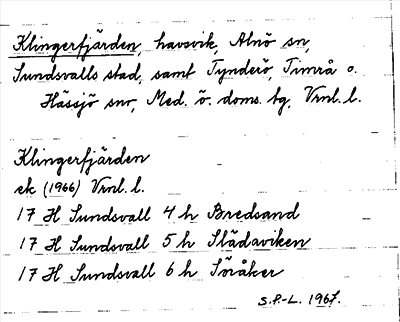 Klingerfjärden, havsvik, Alnö sn,
Sundsvalls stad, samt Tynderö, Timrå o.
Hässjö snr, Med. ö. doms. tg, Vrnl. l.
Klingerfjärden
ek (1966) Vrnl. l.
17 H Sundsvall 4 h Bredsand
17 H Sundsvall 5 h Slädaviken
17 H Sundsvall 6 h Söråker
S.P-L. 1967.